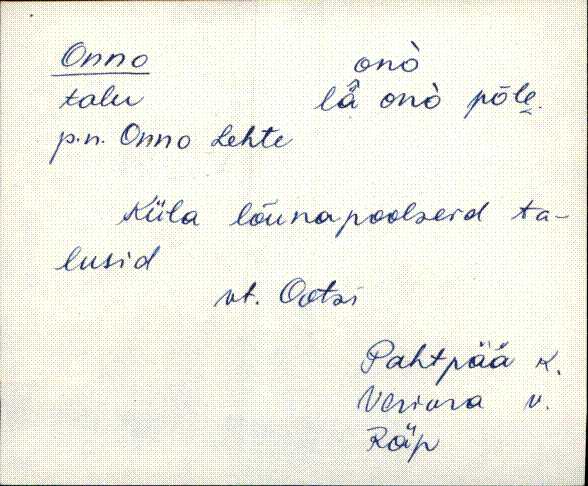 Onno onò
talu lä̂ onò põlẹ.
p.n. Onno Lehte
Küla lõunapoolseid ta-
lusid
vt. Ootsi
Pahtpää k.
Veriora v.
Räp